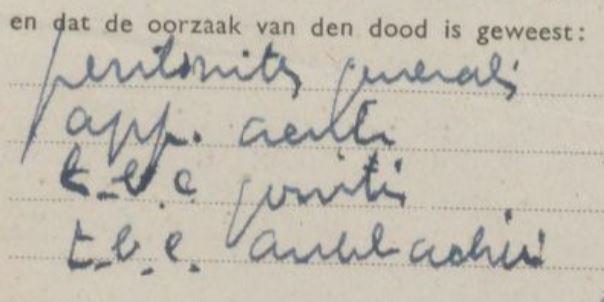 en dat de oorzaak van den dood is geweest:
peritonitis generalis
app. acuta
t.b.c.
t.b.c.